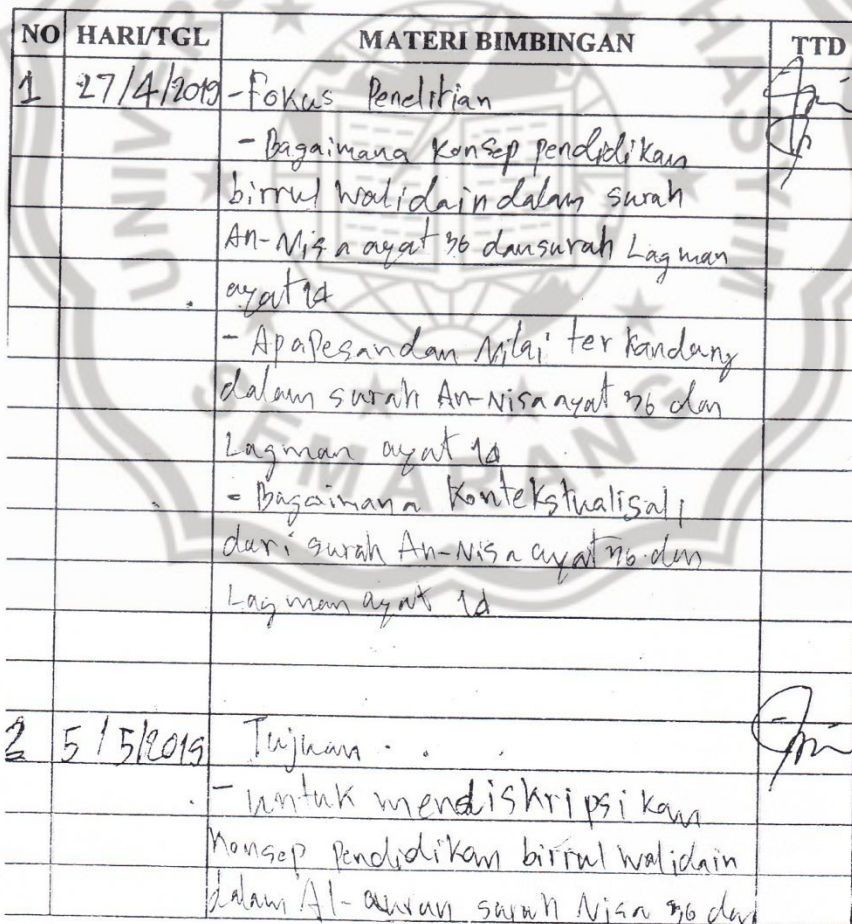 NO HARI/TGL MATERI BIMBINGAN TTD
1 27/4/2019 - Fokus Penelitian
- Bagaimana Konsep pendidikan
birrul walidain dalam surah
An-Nisa ayat 36 dan surah Laqman
ayat 14
- Apa Pesan dan Nilai terkandung
dalam surah An-Nisa ayat 36 dan
Laqman ayat 14
- Bagaimana Kontekstualisasi
dari surah An-Nisa ayat 36 dan
Laqman ayat 14
2 5/5/2019 Tujuan
- untuk mendiskripsikan
Konsep Pendidikan birrul walidain
dalam Al-quran surah Nisa 36 dan
UNIVERSITAS HASYIM
SEMARANG